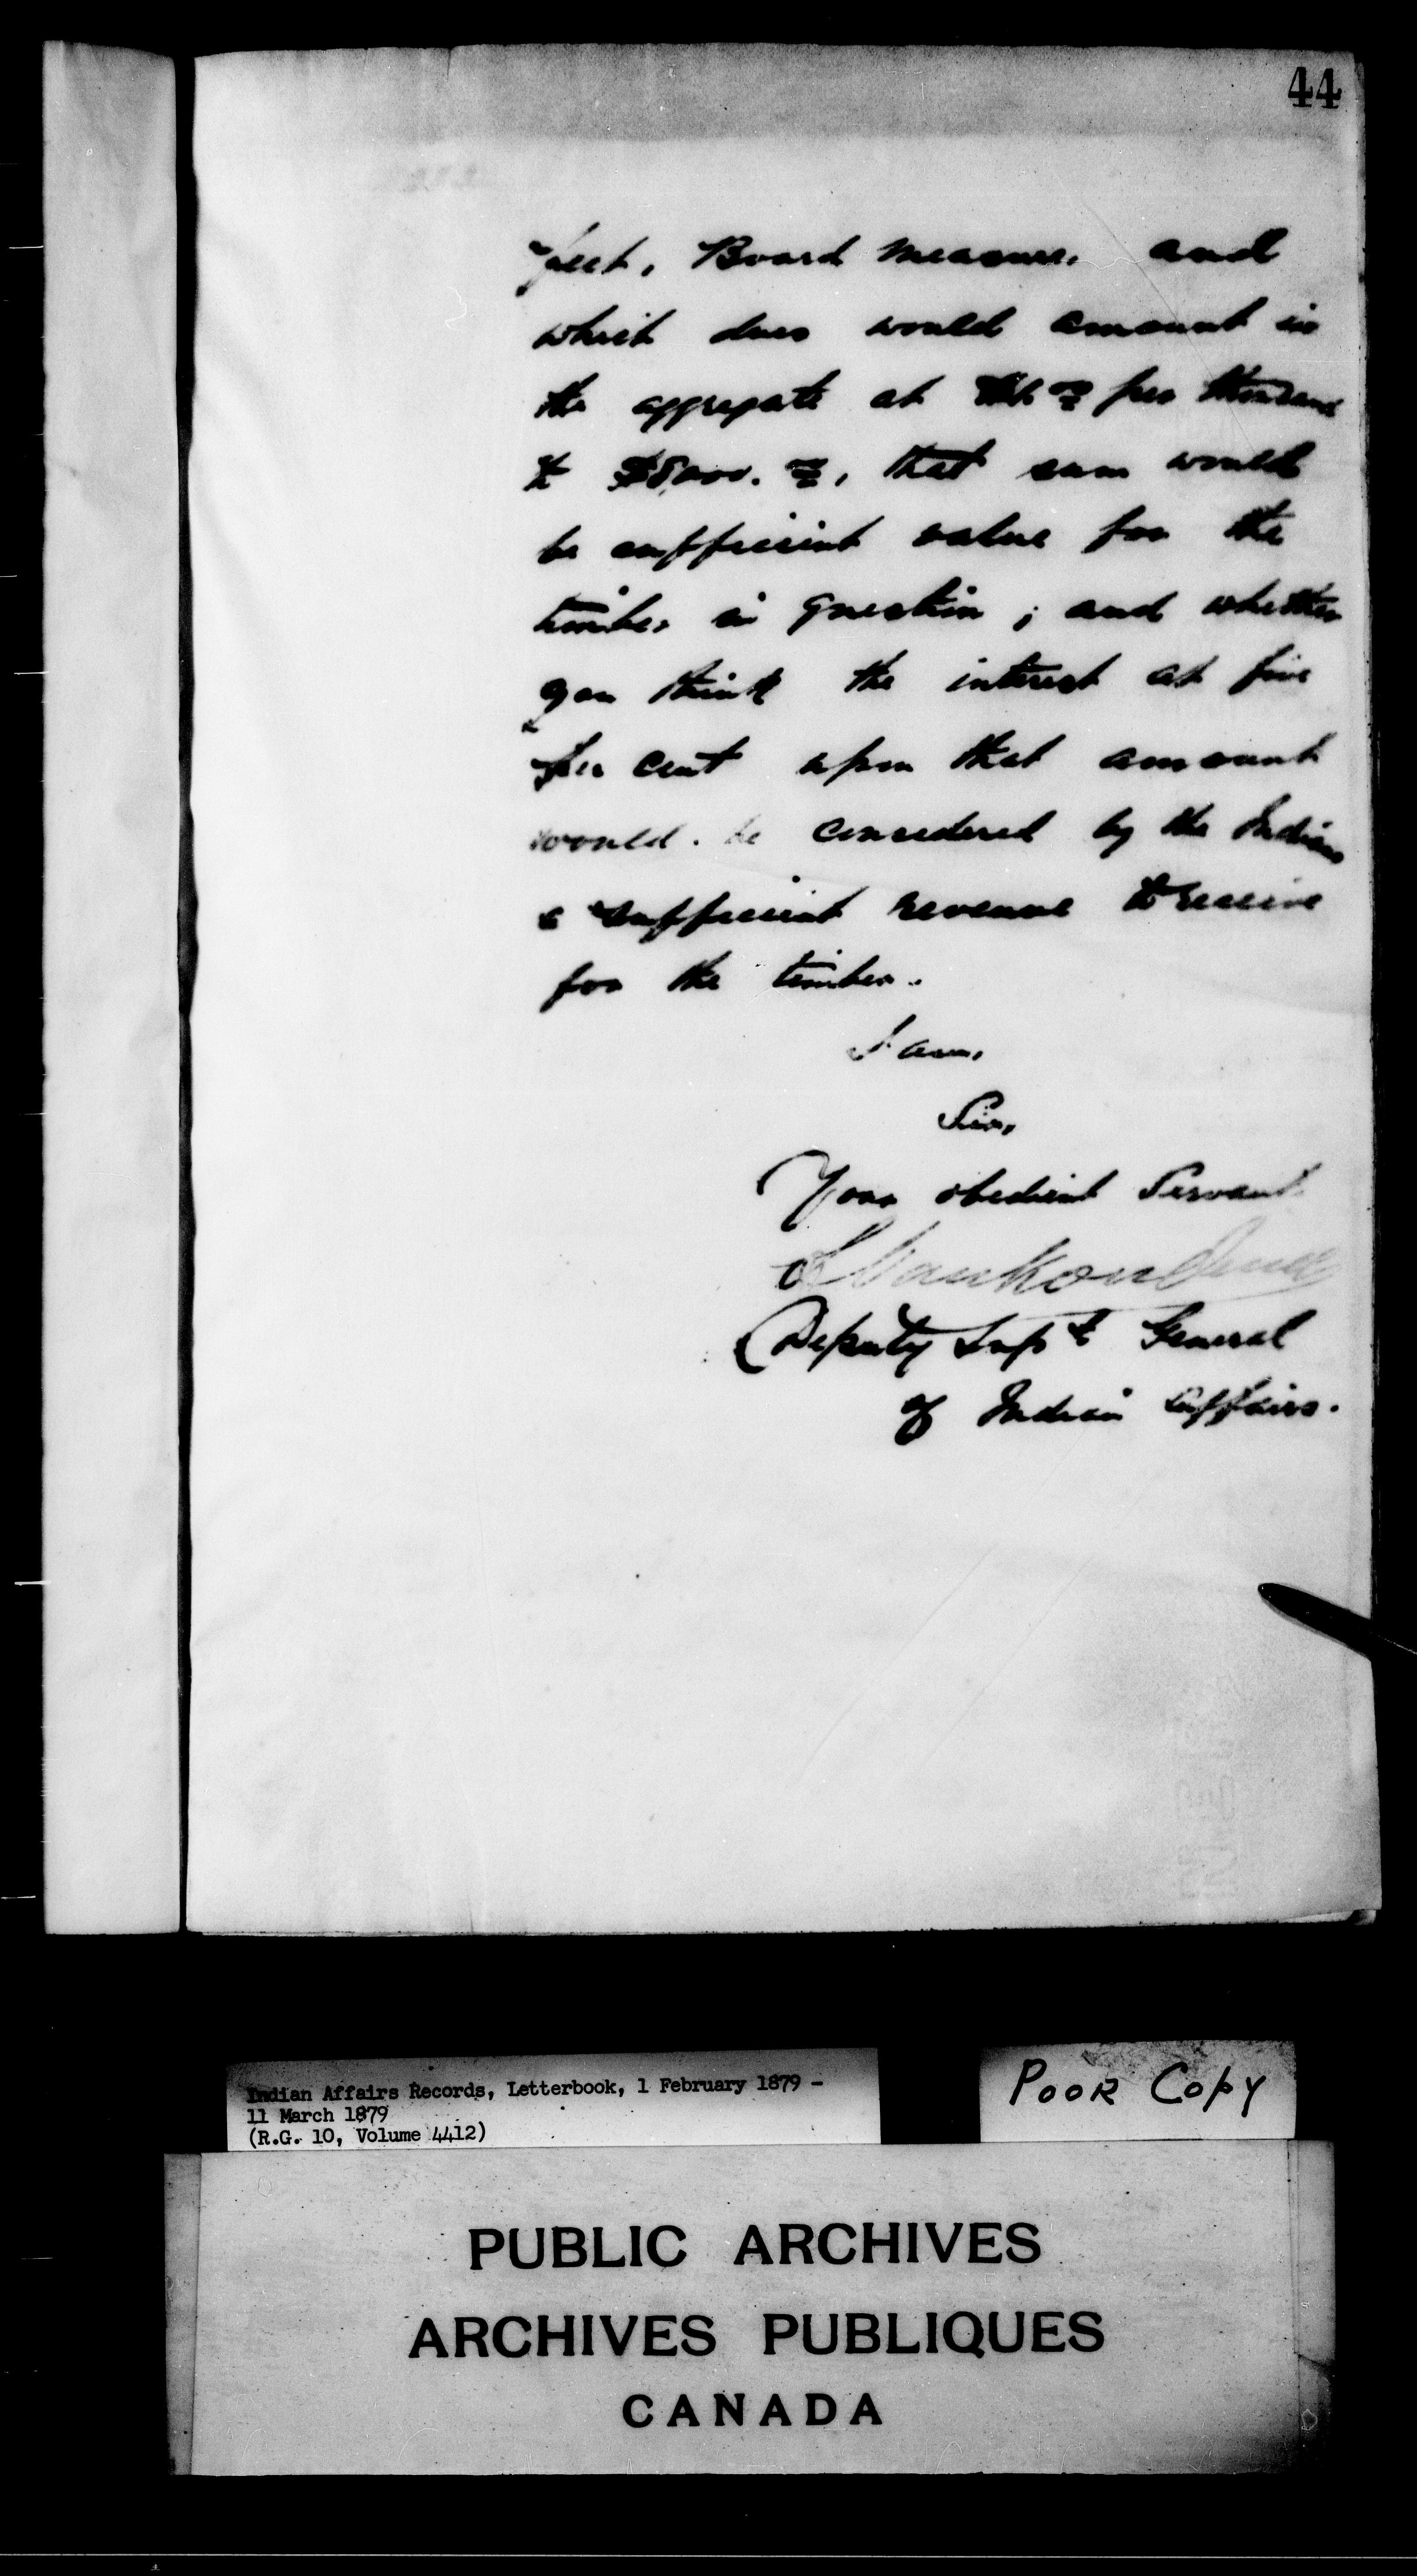 44
feet, Board Measure, and
which dues would amount in
the aggregate at per thousand
to $8,000. 00/00, that sum would
be sufficient value for the
timber in question ; and whether
you think the interest at five
per cent upon that amount
would be considered by the Indians
a sufficient revenue to receive
for the timber.
I am,
Sir,
Your obedient Servant
L VanKoughnet
Deputy Supt General
of Indian Affairs.
Indian Affairs Records, Letterbook, 1 February 1879 -
11 March 1879
(R.G. 10, Volume 4412)
POOR COPY
PUBLIC ARCHIVES
ARCHIVES PUBLIQUES
CANADA